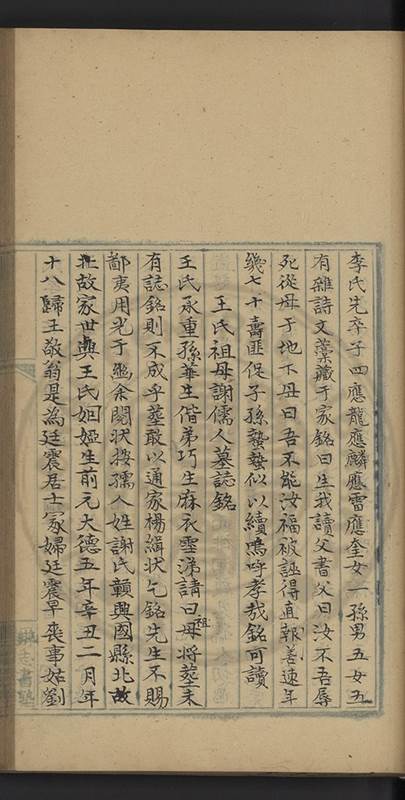 李氏先卒子四應龍應麟應雷應奎女一孫男五女五
有雜詩文藁藏于家銘曰生我讀父書父曰汝不吾辱
死從母于地下母曰吾不能汝福被誣得直報善速年
幾七十壽匪促子孫蟄蟄似以續嗚呼孝哉銘可讀
王氏祖母謝儒人墓誌銘
王氏承重孫華生偕弟巧生麻衣霊涕請曰祖母將塟未
有誌銘則不成乎塟敢以通家楊緝狀乞銘先生不賜
鄙夷用光于幽余閱状按孺人姓謝氏贑興國縣北故
在故家世與王氏姻婭生前元大德五年辛丑二月年
十八歸王敬翁是為廷震居士冢婦廷震早喪事姑劉